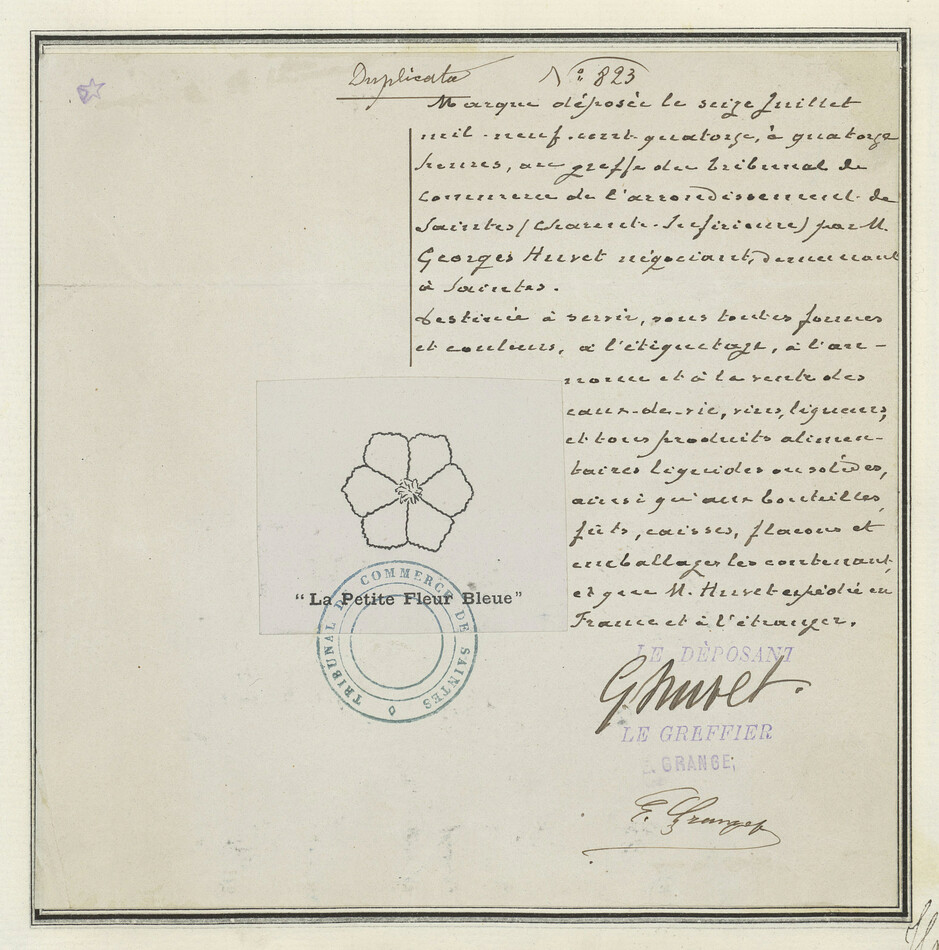 Duplicata N° 823
Marque déposée le seize Juillet
mil-neuf-cent-quatorze, à quatorze
heures, au greffe du Tribunal de
Commerce de l'arrondissement de
Saintes (Charente-Inférieure) par M.
Georges Huvet négociant, demeurant
à Saintes.
Destinée à servir, sous toutes formes
et couleurs, à l'étiquetage, à l'an-
nonce et à la vente des
eaux-de-vie, vins, liqueurs,
et tous produits alimen-
taires liquides ou solides,
ainsi qu'aux bouteilles,
fûts, caisses, flacons et
emballages les contenant,
et que M. Huvet expédie en
France et à l'étranger.
"La Petite Fleur Bleue"
TRIBUNAL DE COMMERCE DE SAINTES
LE DÉPOSANT
GHuvet.
LE GREFFIER
E. GRANGE,